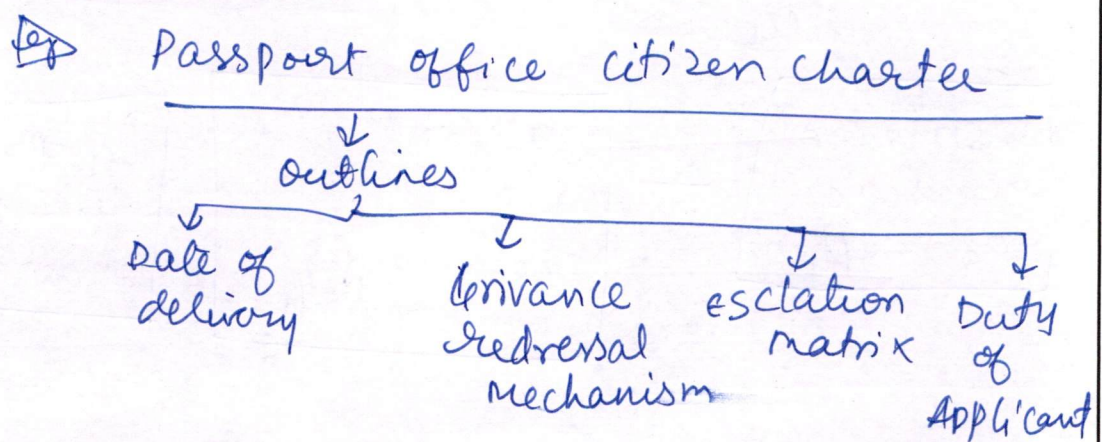 eg
Passport office citizen charter
outlines
Date of
delivery
Grivance
redressal
mechanism
esclation
matrix
Duty
of
Applicant